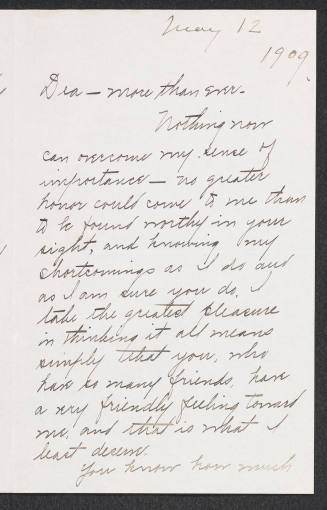 May 12
1909.
Dea — more than ever.
Nothing now
can overcome my sense of
importance — no greater
honor could come to me than
to be found worthy in your
sight, and knowing my
shortcomings as I do and
as I am sure you do, I
take the greatest pleasure
in thinking it all means
simply that you, who
have so many friends, have
a very friendly feeling toward
me, and that is what I
least deserve.
You know how much